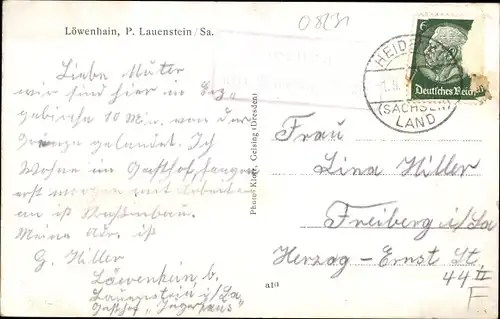 Löwenhain, P. Lauenstein/Sa.
08231
Liebe Mutter
wir sind hier im Erz=
gebirge 10 Min. von der
Grenze gelandet. Ich
Wohne im Gasthof, fangen
erst morgen mit Arbeiten
an ist
Meine Adr. ist
G. Hiller
Löwenhein b.
Lauenstein i/Sa
Gasthof „Jägerhaus"
Photo-Klotz, Geising (Dresden)
a10
HEIDE
(SACHSEN)
LAND
6
Deutsches Reich
Frau
Lina Hiller
Freiberg i/Sa
Herzog-Ernst St.
44 II
F